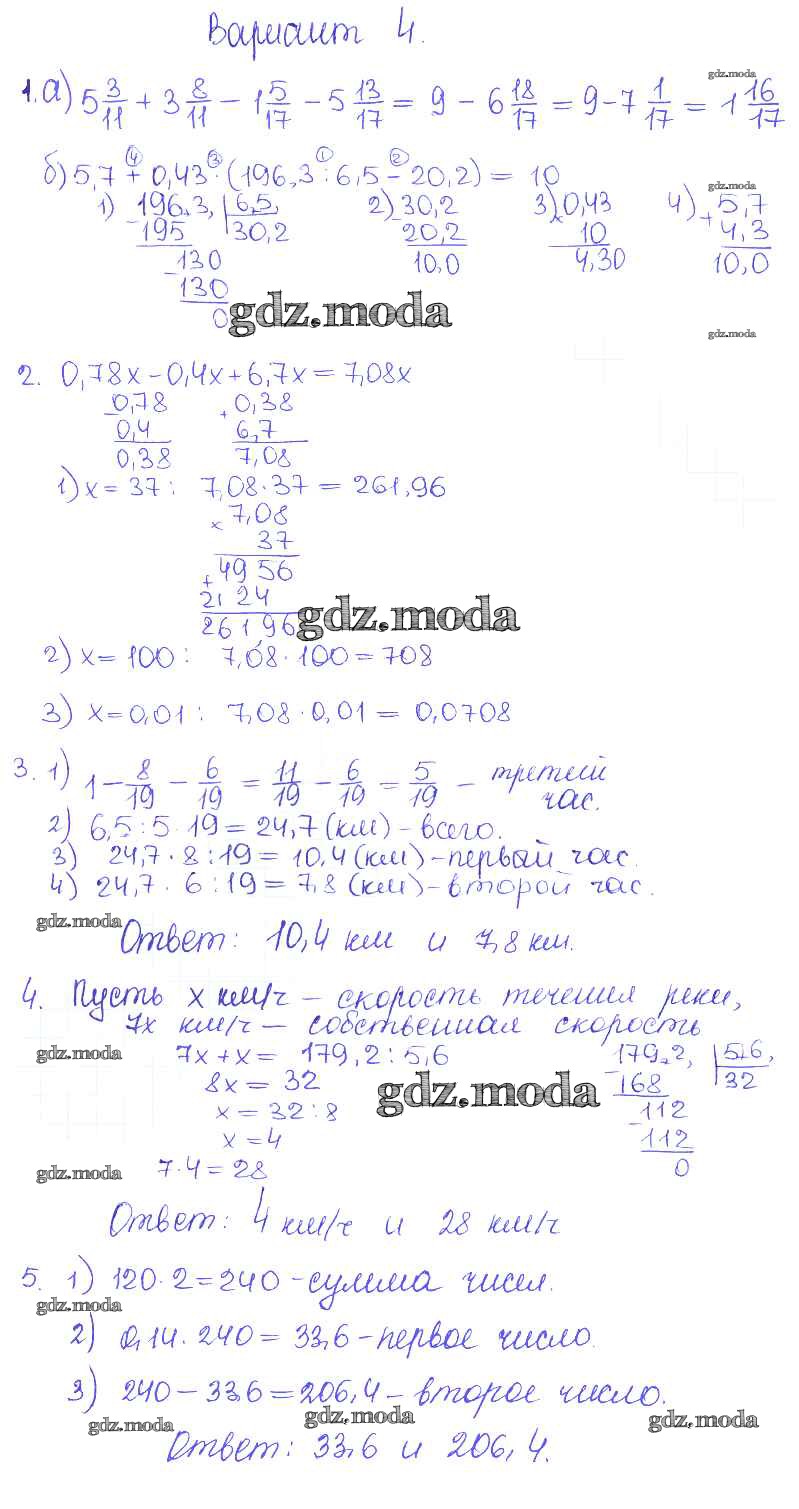 Вариант 4.
gdz.moda
1. а) 5 3/11 + 3 8/11 - 1 5/17 - 5 13/17 = 9 - 6 18/17 = 9 - 7 1/17 = 1 16/17
④ ③ ① ②
б) 5,7 + 0,43 · (196,3 : 6,5 - 20,2) = 10
gdz.moda
1) 196.3, | 6,5, 2) 30,2 3) 0,43 4) 5,7
- 195 30,2 - 20,2 × 10 + 4,3
130 10,0 4,30 10,0
- 130
0
gdz.moda
gdz.moda
2. 0,78x - 0,4x + 6,7x = 7,08x
- 0,78 + 0,38
0,4 6,7
0,38 7,08
1) x = 37 : 7,08 · 37 = 261,96
× 7,08
37
+ 49 56
21 24
26 1 96
gdz.moda
2) x = 100 : 7,08 · 100 = 708
3) x = 0,01 : 7,08 · 0,01 = 0,0708
3. 1) 1 - 8/19 - 6/19 = 11/19 - 6/19 = 5/19 - третий
час.
2) 6,5 : 5 · 19 = 24,7 (км) - всего.
3) 24,7 · 8 : 19 = 10,4 (км) - первый час.
4) 24,7 · 6 : 19 = 7,8 (км) - второй час.
gdz.moda
Ответ: 10,4 км и 7,8 км.
4. Пусть x км/ч - скорость течения реки,
7x км/ч - собственная скорость
gdz.moda
7x + x = 179,2 : 5,6 179.2, | 5,6,
8x = 32 - 168 32
gdz.moda
x = 32 : 8 112
x = 4 - 112
gdz.moda
7 · 4 = 28 0
Ответ: 4 км/ч и 28 км/ч
5. 1) 120 · 2 = 240 - сумма чисел.
gdz.moda
2) 0,14 · 240 = 33,6 - первое число.
3) 240 - 33,6 = 206,4 - второе число.
gdz.moda gdz.moda gdz.moda
Ответ: 33,6 и 206,4.